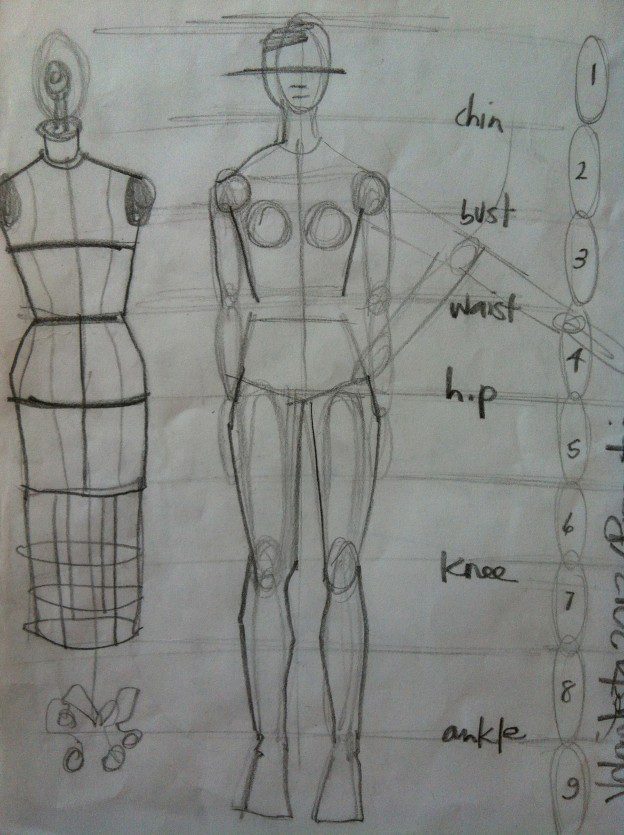 1
chin
2
bust
3
waist
4
hip
5
6
knee
7
8
ankle
9